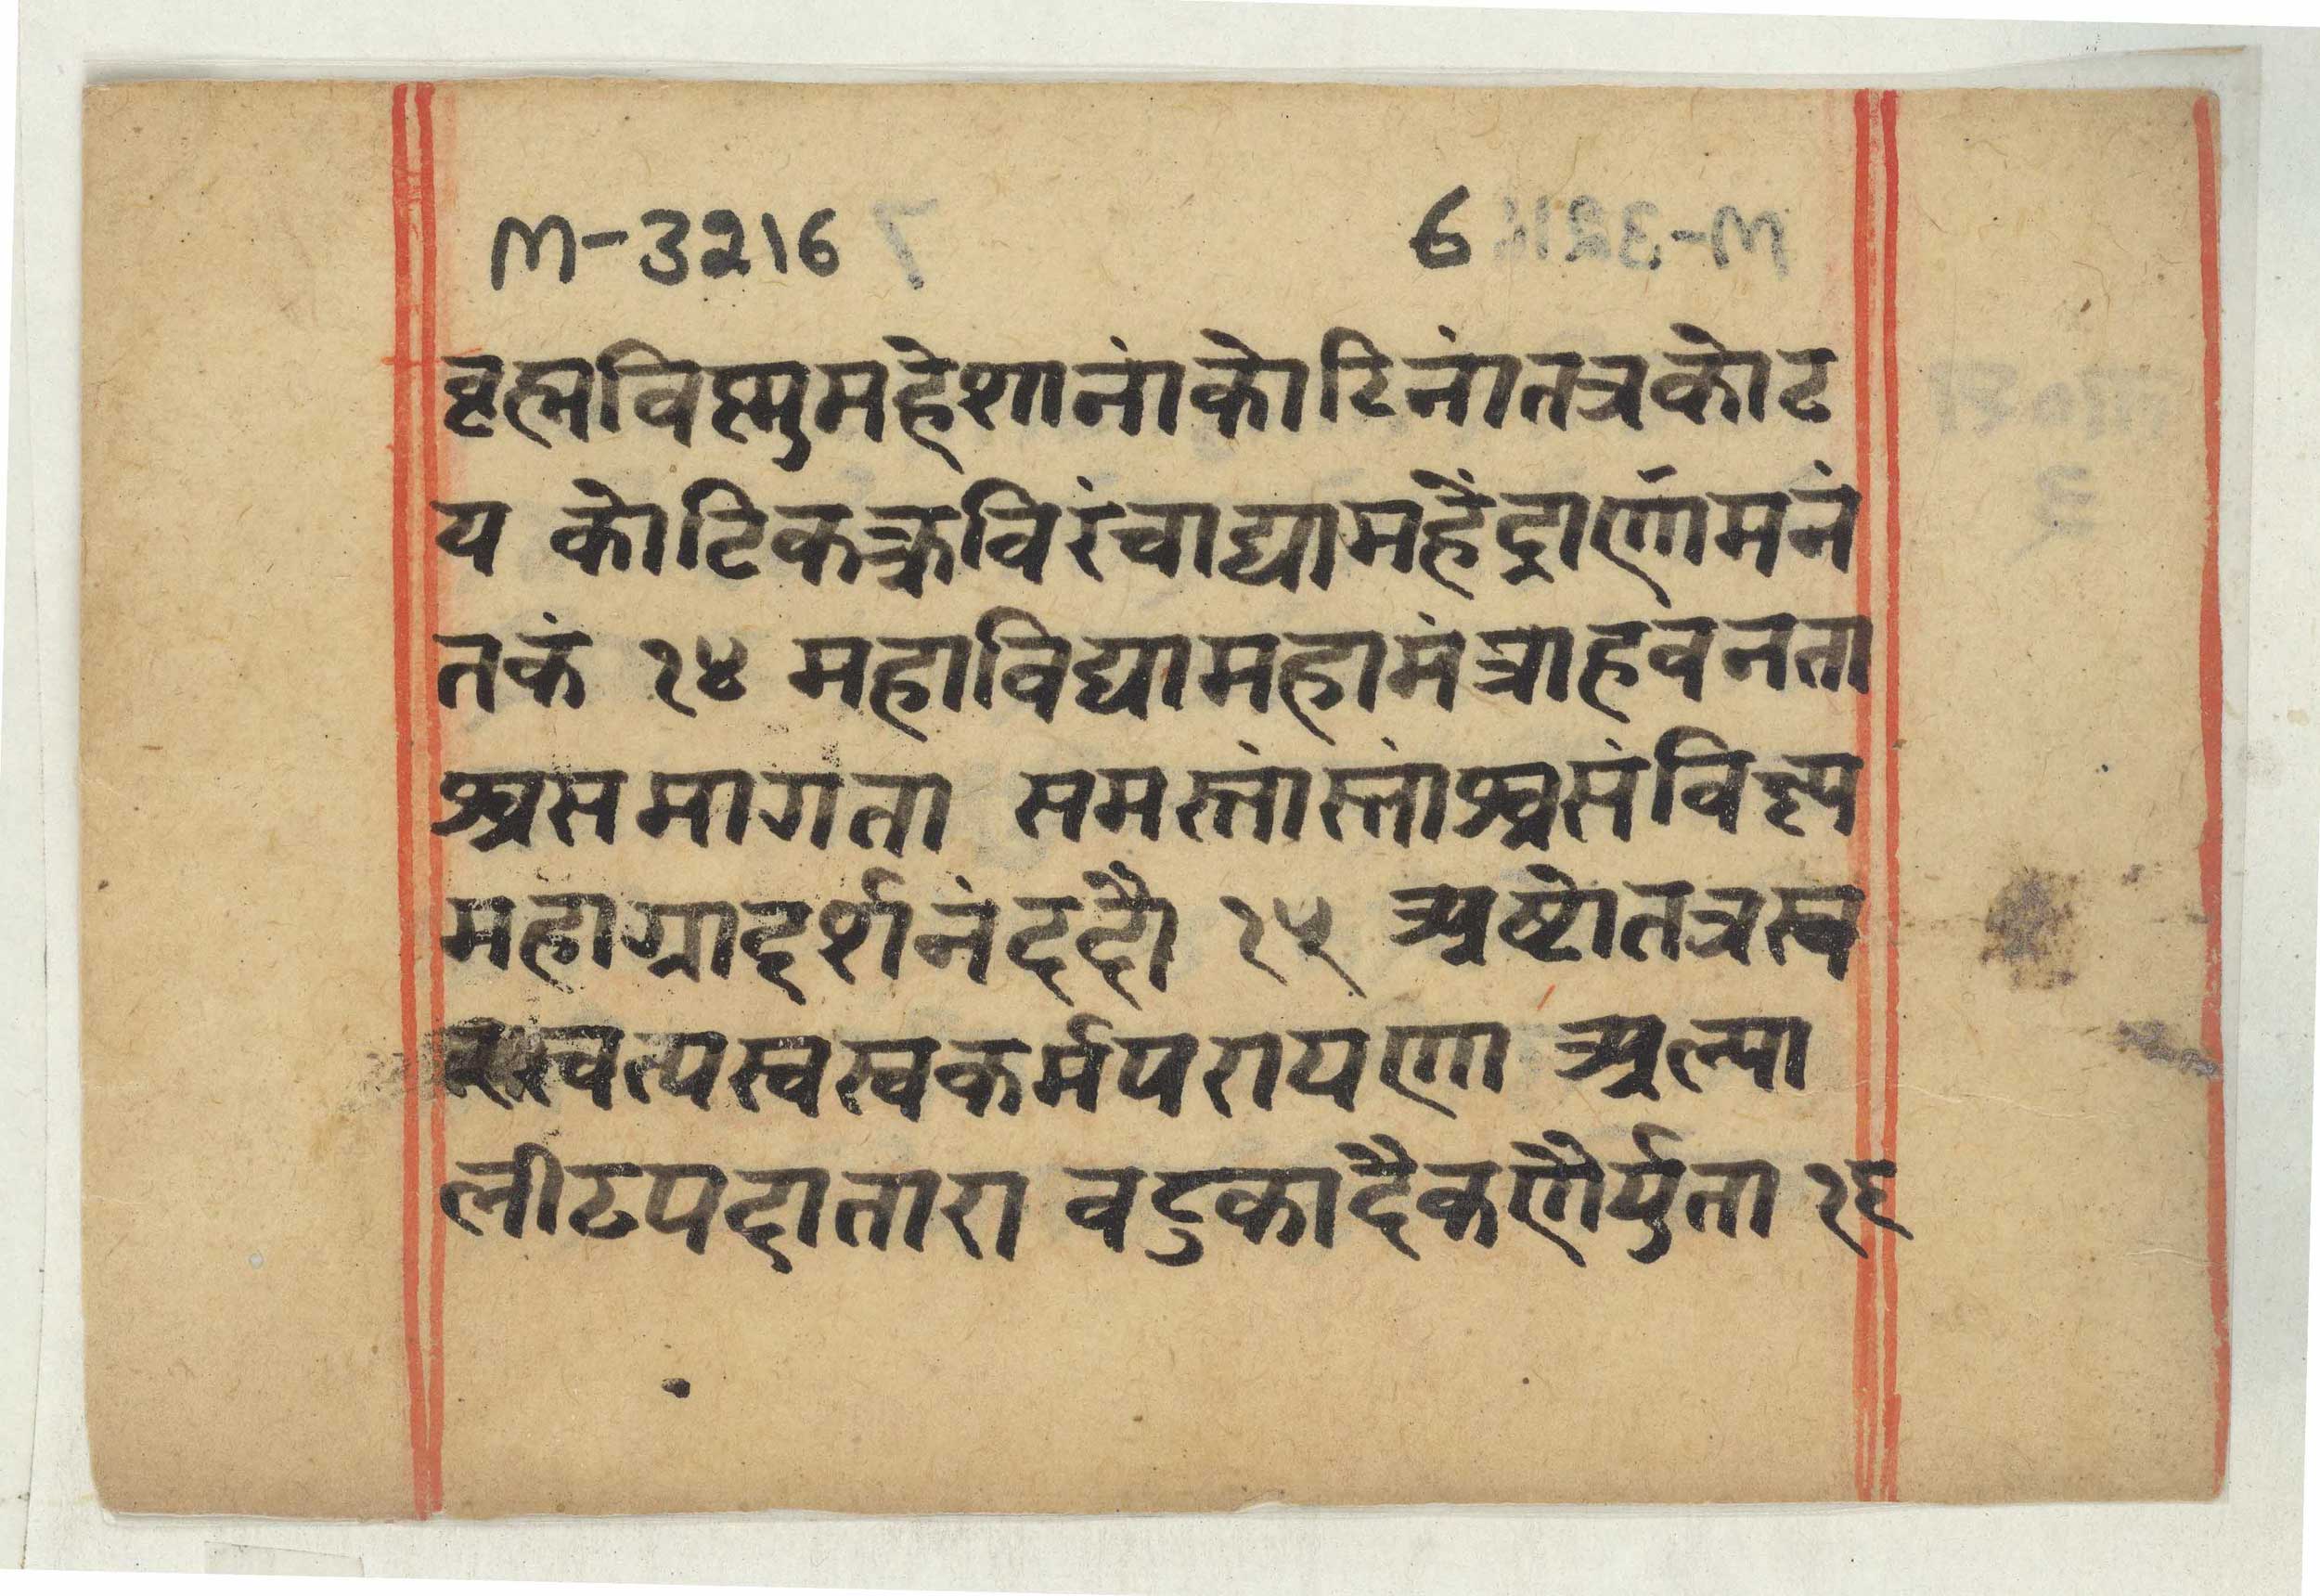 M-3216 6
बृह्मविष्णुमहेशानांकोटिनांतत्रकोट
य कोटिकक्रविरंचाद्यामहेंद्राणामनं
तकं १४ महाविद्यामहामंत्राहवनता
श्चसमागता समस्तांस्तांश्चसंविज्ञप्य
महाग्रादर्शनंददौ १५ अष्टोतत्रस्व
स्वत्पस्वस्वकर्मपरायणा अल्पा
लीटपदातारा वटुकादैकणैर्युता १६